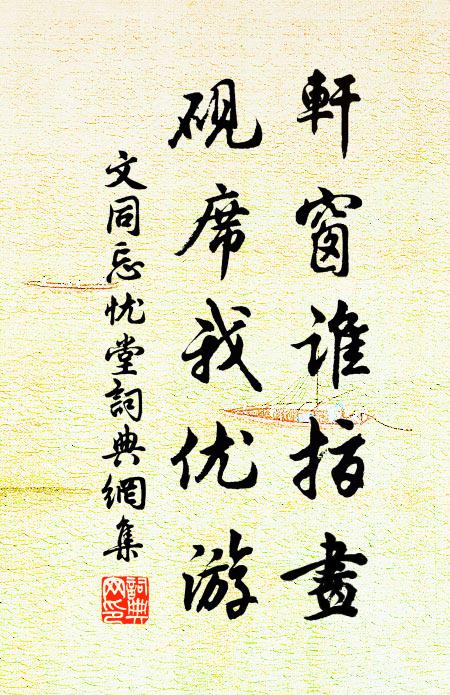 軒窗谁指畫
砚席我优游
文同忘忧堂詞典網集
詞典网印